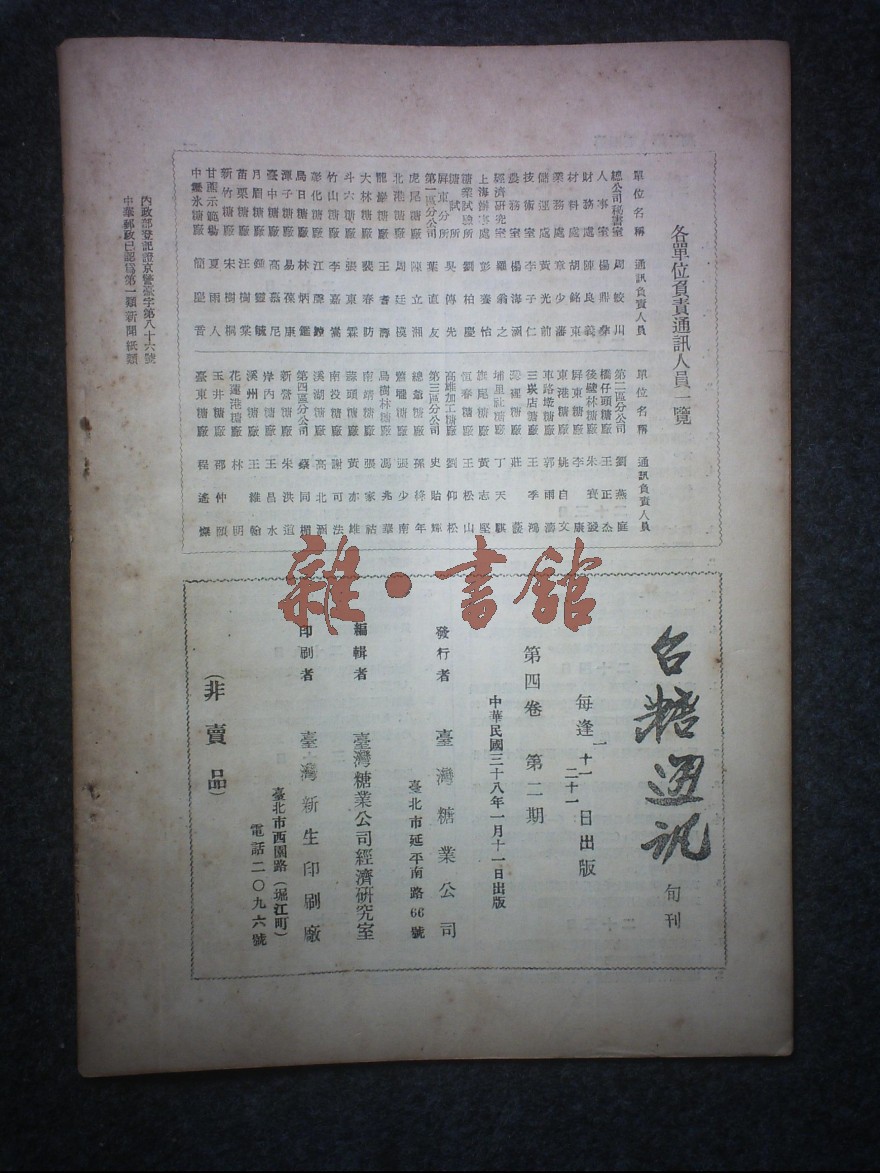 各單位負責通訊人員一覽
單位名稱 通訊負責人員 單位名稱 通訊負責人員
總公司秘書室 周蛟川 第二區分公司 劉燕庭
人事室 楊鼎 橋仔頭糖廠 王正杰
財務處 陳良義 後壁林糖廠 朱賓
材料處 胡銘東 屏東糖廠 李康
業務處 章少濤 東港糖廠 姚自文
儲運處 黃光前 車路墘糖廠 郭雨濤
技術室 李子仁 三崁店糖廠 王季鴻
農務室 楊海 糖廠 莊
經濟研究室 羅翁之 埔里社糖廠 丁天騏
上海辦事處 彭養怡 旗尾糖廠 黃志堅
糖業試驗所 劉柏慶 恆春糖廠 王松山
屏東分所 吳傳先 高雄加工糖廠 劉仰松
第一區分公司 葉直友 第三區分公司 史貽輝
虎尾糖廠 陳立湘 總爺糖廠 孫綠年
北港糖廠 周廷 糖廠 張少南
龍巖糖廠 王壽 烏樹林糖廠 馮兆華
大林糖廠 裴春防 南靖糖廠 張家祜
斗六糖廠 張東霖 蒜頭糖廠 黃亦雄
竹山糖廠 李嘉嵩 南投糖廠 謝可法
彰化糖廠 江 溪湖糖廠 高北
烏日糖廠 林炳鑑 第四區分公司 蔡同
潭子糖廠 易葆康 新營糖廠 朱洪
臺中糖廠 高嘉尼 岸內糖廠 王昌水
月眉糖廠 鍾靈毓 溪州糖廠 王維翰
苗栗糖廠 汪樹棠 花蓮港糖廠 林明
新竹糖廠 宋樹桐 玉井糖廠 鄒仲
甘蔗示範場 夏雨人 臺東糖廠 程遙
中壢氷糖廠 簡慶音
內政部登記證京警臺字第八十六號
中華郵政已認爲第一類新聞紙類
雜·書館
台糖通訊 旬刊
每逢一 十一 二十一日出版
第四卷 第二期
中華民國三十八年一月十一日出版
發行者 臺灣糖業公司
臺北市延平南路66號
編輯者 臺灣糖業公司經濟研究室
印刷者 臺灣新生印刷廠
臺北市西園路(堀江町)
電話二〇九六號
(非賣品)